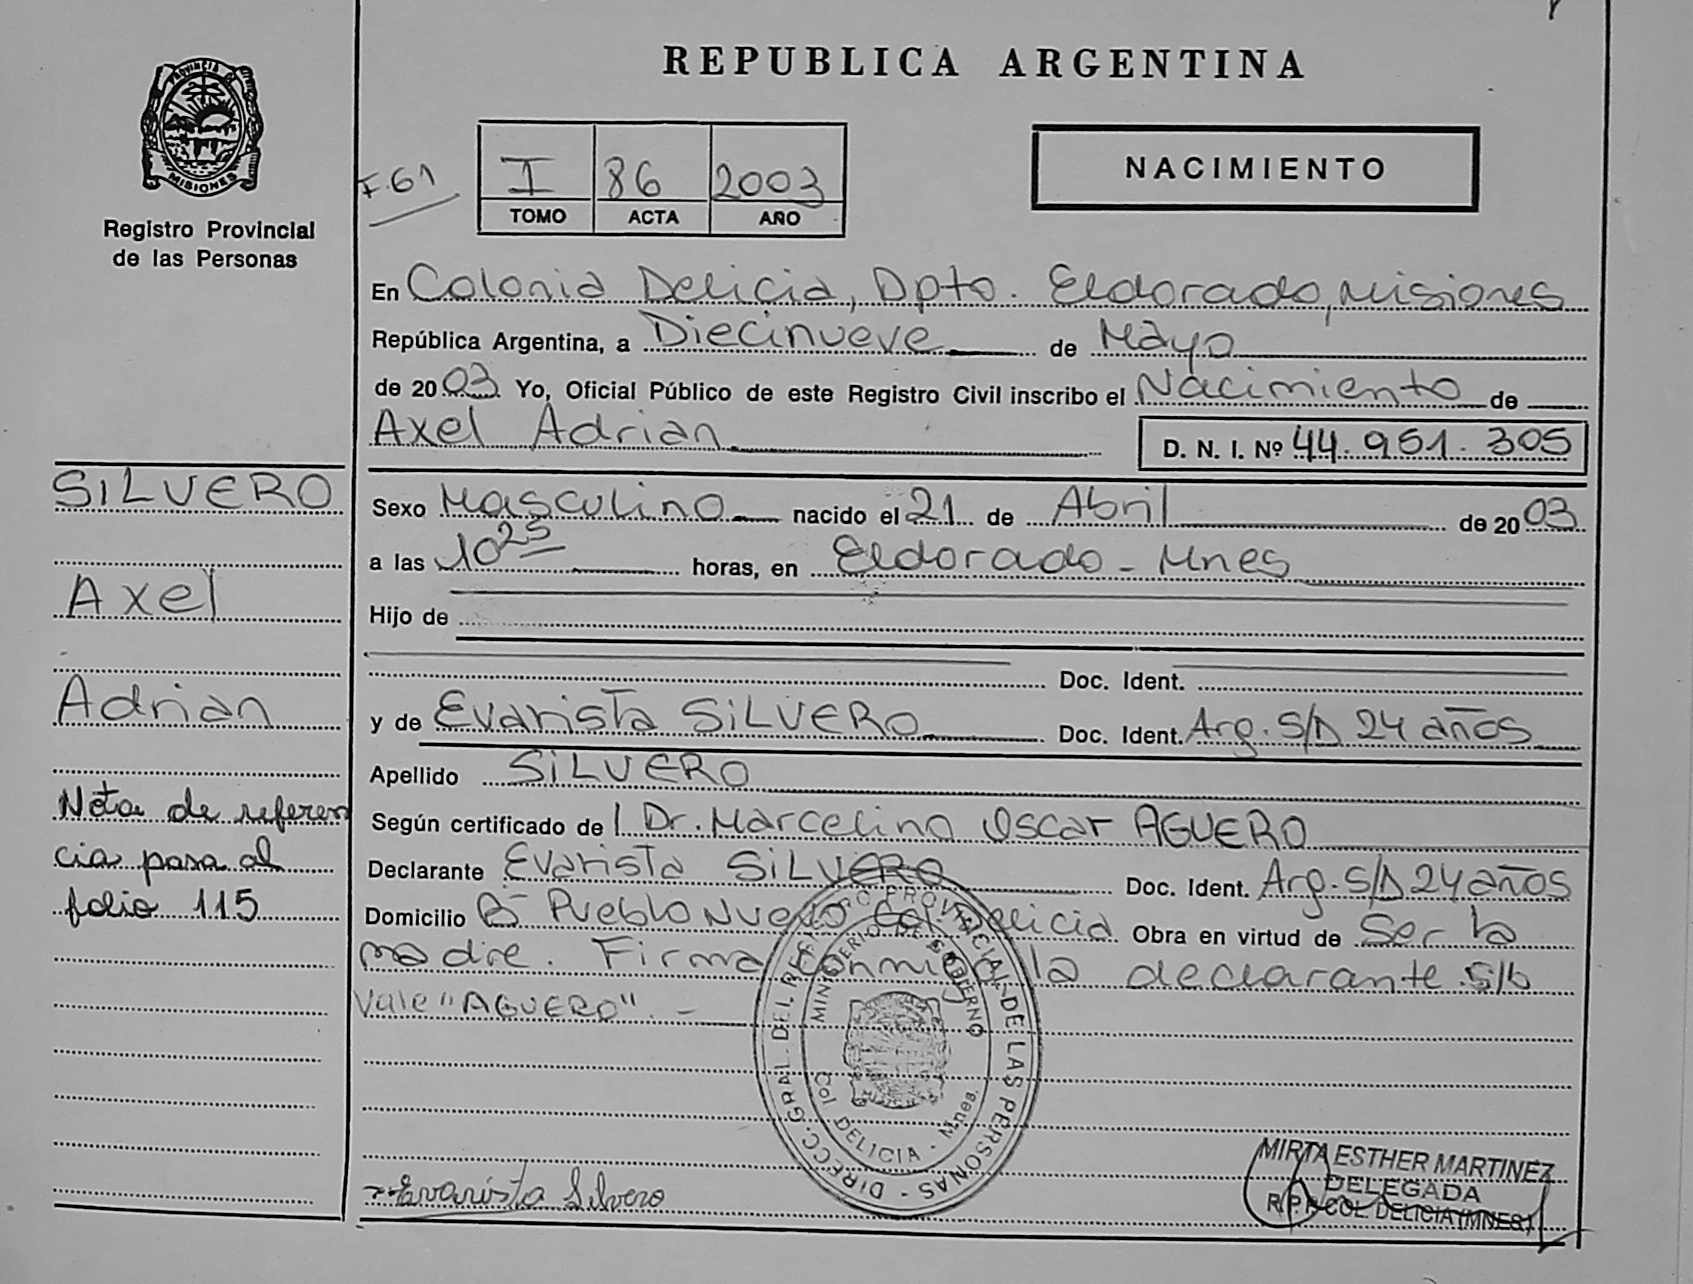 REPUBLICA ARGENTINA
PROVINCIA
MISIONES
Registro Provincial
de las Personas
F.61
I 86 2003
TOMO ACTA AÑO
NACIMIENTO
En Colonia Delicia, Dpto. Eldorado, Misiones
República Argentina, a Diecinueve de Mayo
de 2003 Yo, Oficial Público de este Registro Civil inscribo el Nacimiento de
Axel Adrian D. N. I. Nº 44.951.305
Sexo Masculino nacido el 21 de Abril de 2003
a las 10 25 horas, en Eldorado - Mnes
Hijo de
Doc. Ident.
y de Evarista SILVERO Doc. Ident. Arg. S/D 24 años
Apellido SILVERO
Según certificado de l Dr. Marcelino Oscar AGUERO
Declarante Evarista SILVERO Doc. Ident. Arg. S/D 24 años
Domicilio Bº Pueblo Nuevo Col. Delicia Obra en virtud de Ser la
madre. Firma conmigo la declarante. S/b
Vale "AGUERO". -
SILVERO
Axel
Adrian
Nota de referen
cia pasa al
folio 115
DIRECC. GRAL. DEL REG. PROVINCIAL DE LAS PERSONAS
MINISTERIO DE GOBIERNO
Col. DELICIA - Mnes.
Evarista Silvero
MIRTA ESTHER MARTINEZ
DELEGADA
R.P.P. COL. DELICIA (MNES)